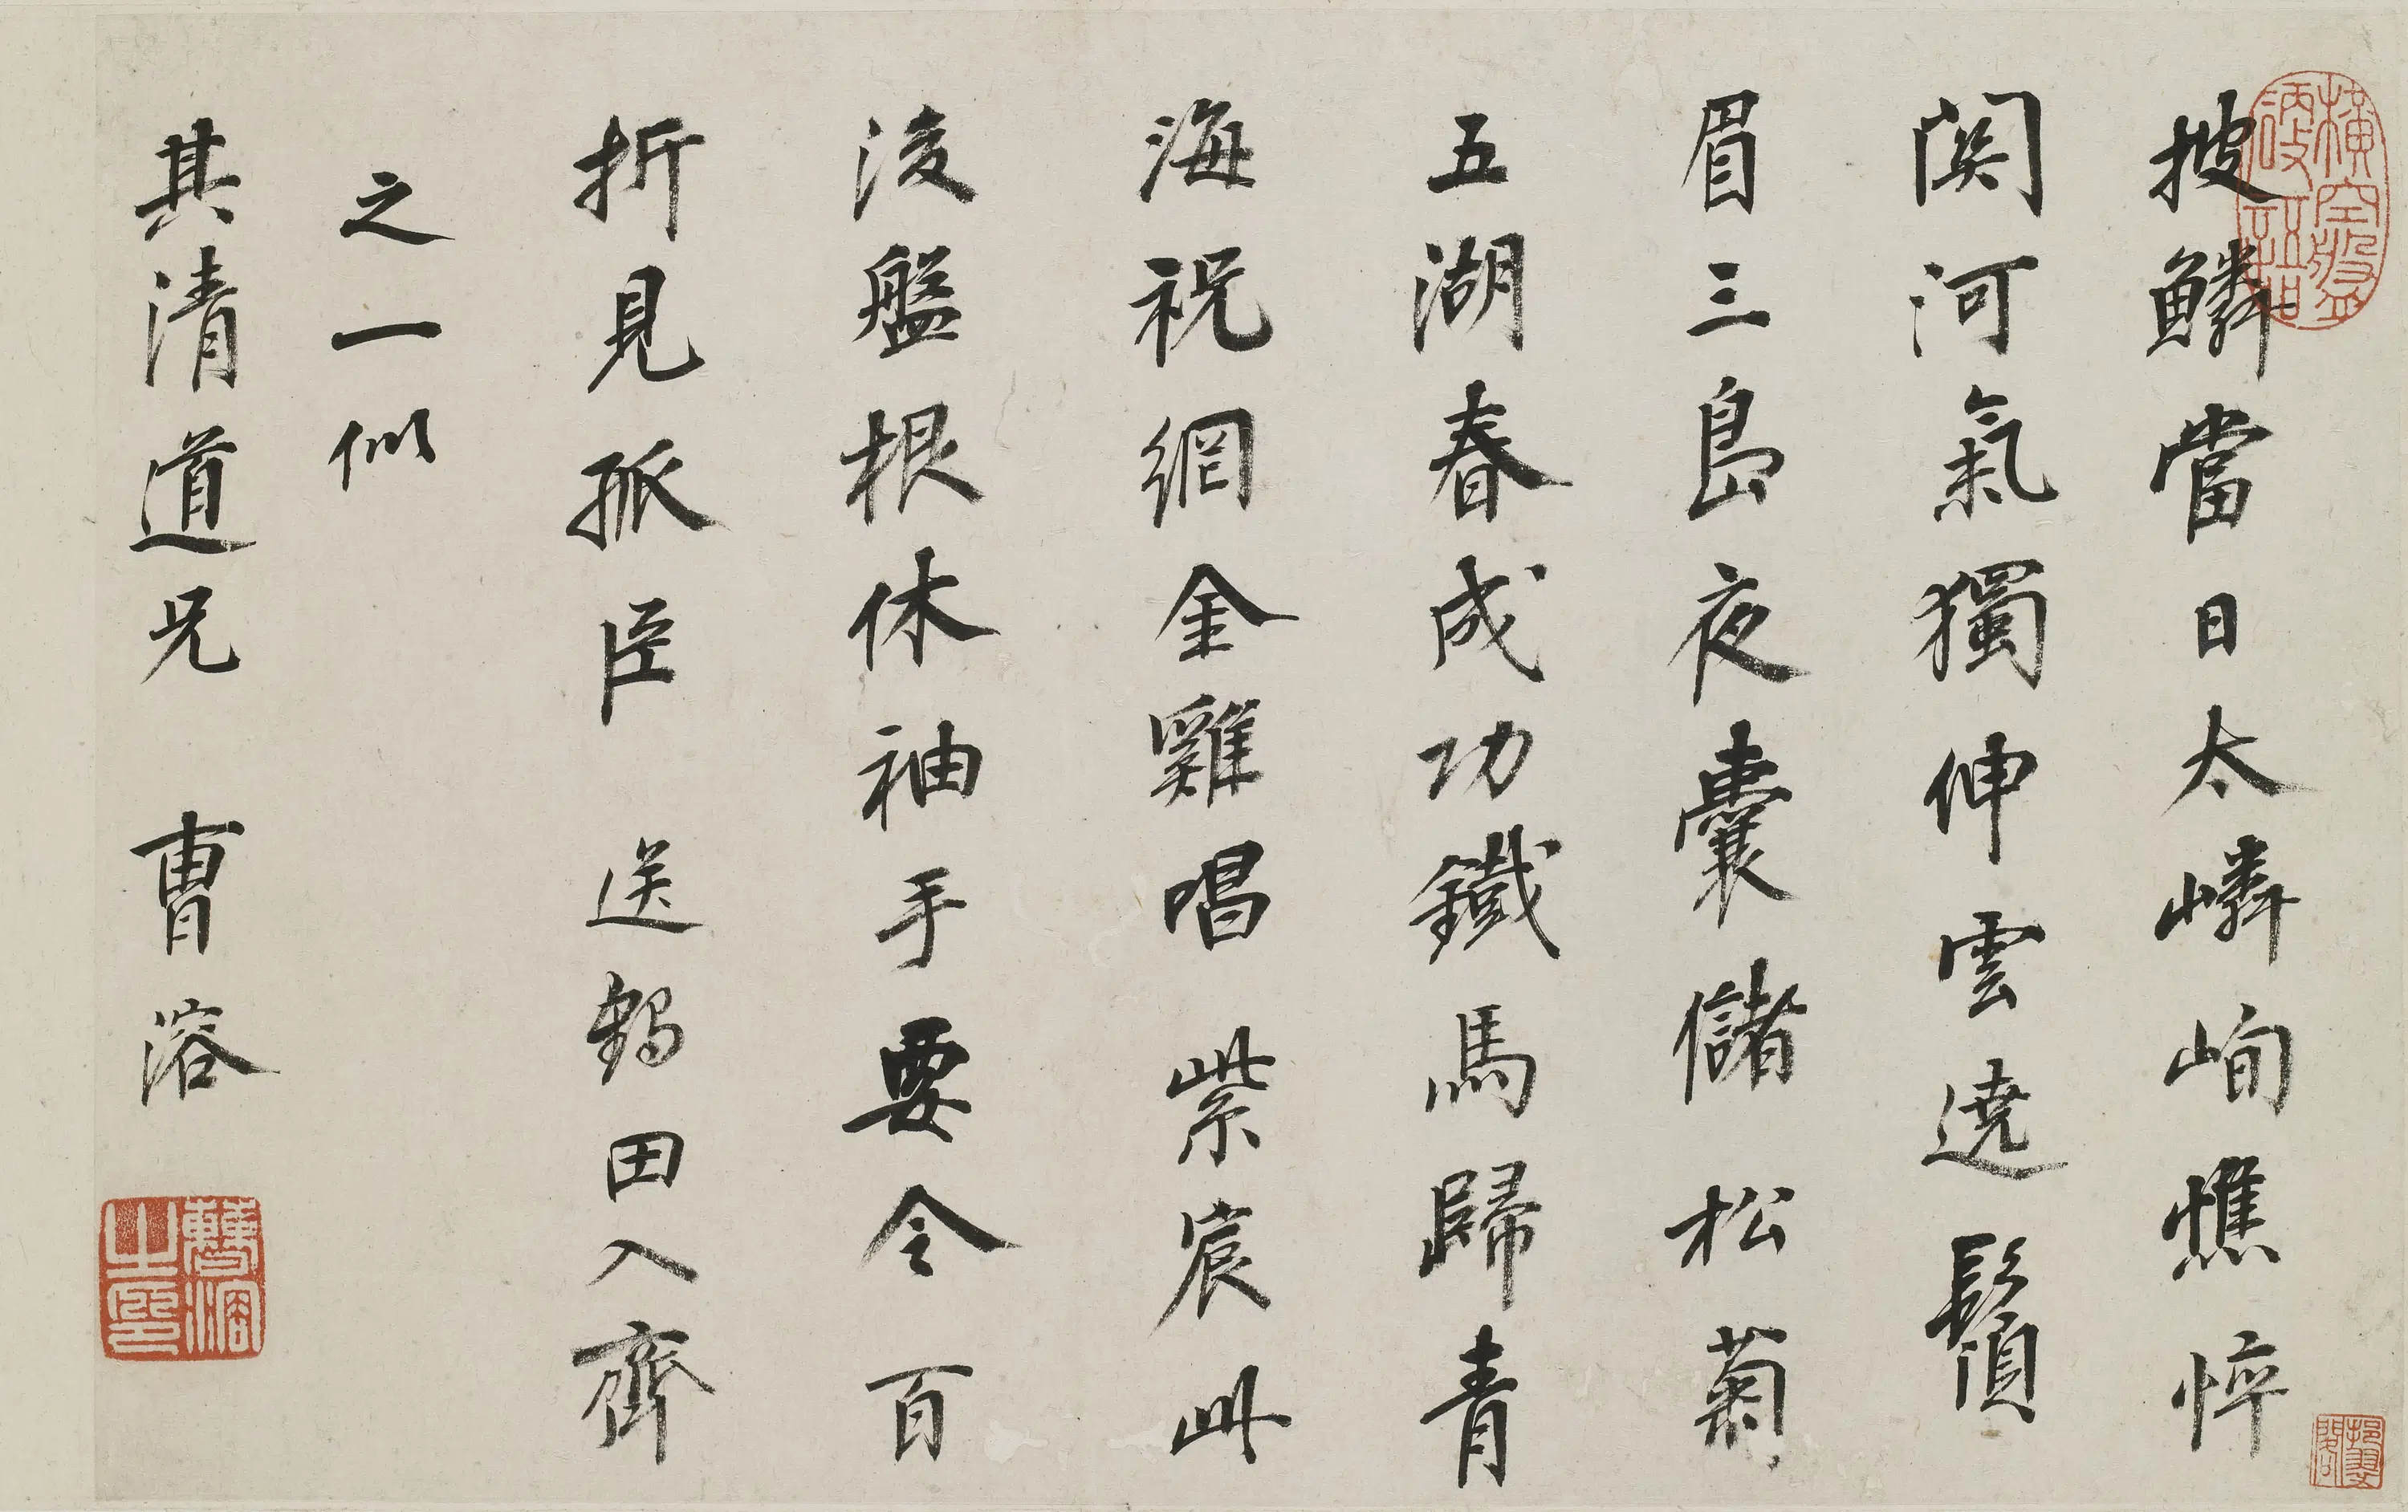 披鱗當日太嶙峋憔悴
関河氣獨伸雲遶鬚
眉三島夜囊儲松菊
五湖春成功鐵馬歸青
海祝網金雞唱紫宸此
後盤根休袖手要令百
折見孤臣 送鶴田入齊
之一似
其清道兄 曹溶